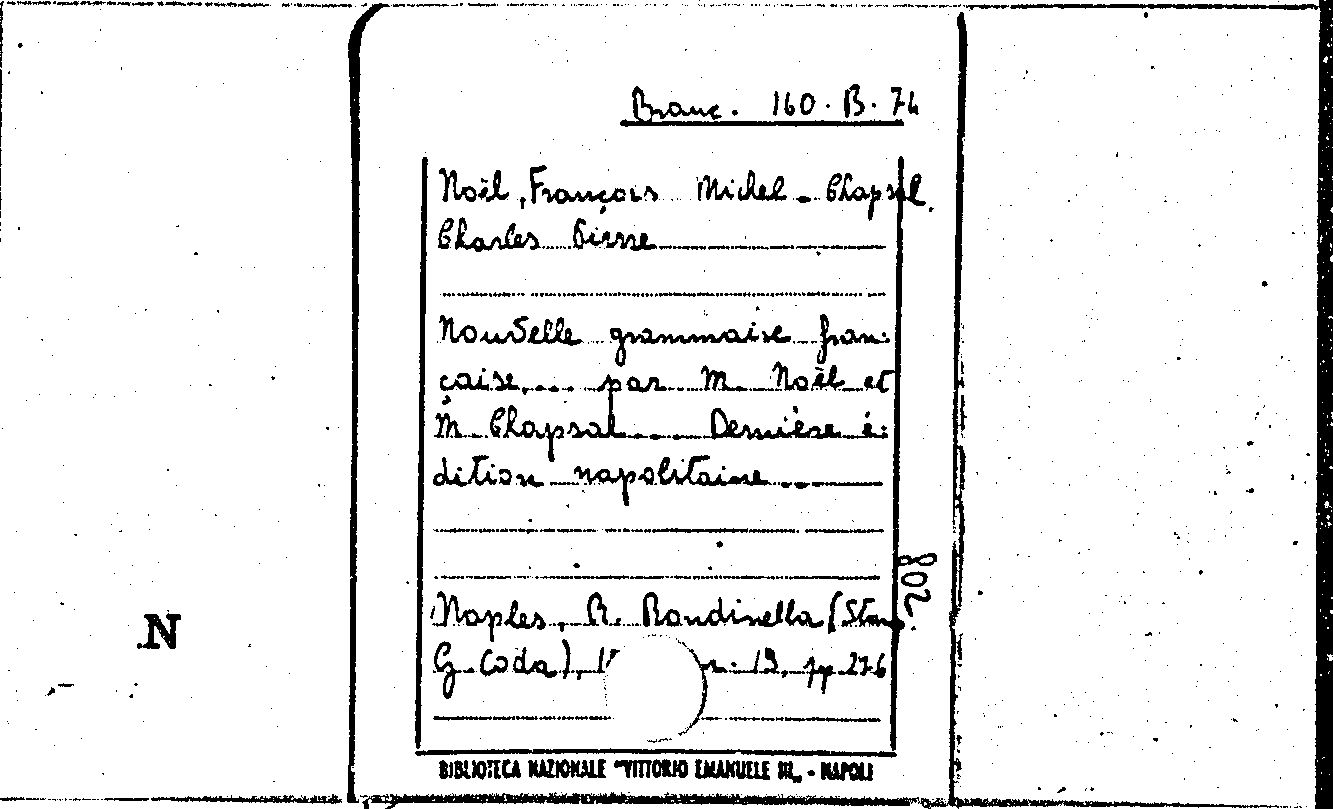 Branc. 160. B. 74
Noël, François Michel - Chapsal,
Charles Pierre
Nouvelle grammaire fran-
çaise... par M. Noël et
M. Chapsal... Dernière é-
dition napolitaine...
802
Naples, R. Rondinella (Stam.
G. Coda), in. 19, pp. 276
N
BIBLIOTECA NAZIONALE "VITTORIO EMANUELE III„ - NAPOLI